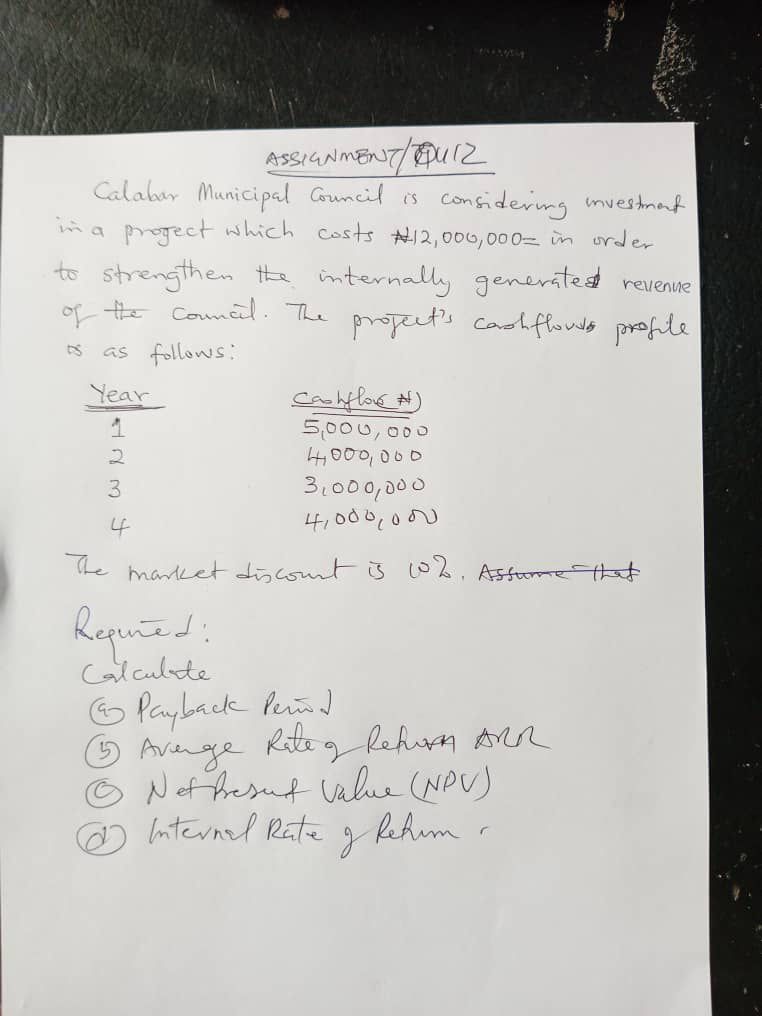 ASSIGNMENT/QUIZ
Calabar Municipal Council is considering investment
in a project which costs ₦12,000,000= in order
to strengthen the internally generated revenue
of the Council. The project's cashflows profile
is as follows:
Year Cashflow(₦)
1 5,000,000
2 4,000,000
3 3,000,000
4 4,000,000
The market discount is 10%. Assume that
Required:
Calculate
(a) Payback Period
(b) Average Rate of Return ARR
(c) Net Present Value (NPV)
(d) Internal Rate of Return.